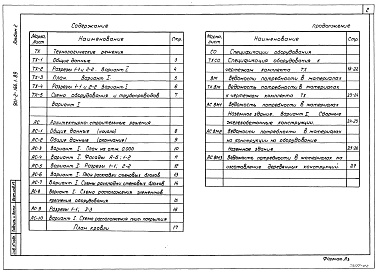 2
Альбом 2
Содержание
продолжение
Марка, лист
Наименование
Стр.
ТХ Технологические решения
ТХ-1 Общие данные 3
ТХ-2 Разрезы 1-1 и 2-2 Вариант I 4
ТХ-3 План Вариант I 5
ТХ-4 Разрезы 1-1 и 2-2 Вариант I 6
ТХ-5 Схема оборудования и трубопроводов 7
Вариант I
АС Архитектурно-строительные решения
АС-1 Общие данные (начало) 8
АС-2 Общие данные (окончание) 9
АС-3 Вариант I. План на отм. 0.000 10
АС-4 Вариант I. Фасады 11
АС-5 Вариант I. Разрезы 1-1, 2-2 12
АС-6 Вариант I. План раскладки стеновых блоков 13
АС-7 Вариант I. Схемы раскладки стеновых блоков 14
АС-8 Вариант I. Схема расположения элементов
крепления оборудования 15
АС-9 Разрезы 1-1, 16
АС-10 Вариант I. Схема расположения плит покрытия
План кровли 17
Марка, лист
Наименование
Стр
СО Спецификации оборудования
ТХ.СО Спецификация оборудования к
чертежам комплекта ТХ 18-22
ВМ Ведомости потребности в материалах
ТХ.ВМ Ведомость потребности в материалах
к чертежам комплекта ТХ 23-24
АС.ВМ1 Ведомость потребности в материалах
Наземное здание. Вариант I Сборные
железобетонные конструкции. 24-25
АС.ВМ2 Ведомость потребности в материалах
на конструкции на оборудование
Наземное здание 25-26
АС.ВМ3 Ведомость потребности в материалах на
изготовление деревянных конструкций 27
Формат А3